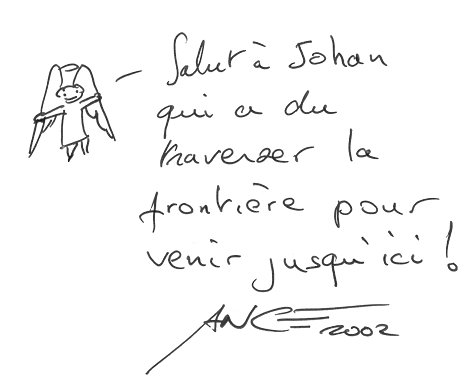 Salut à Johan
qui a du
traverser la
frontière pour
venir jusqu'ici !
ANGE 2002